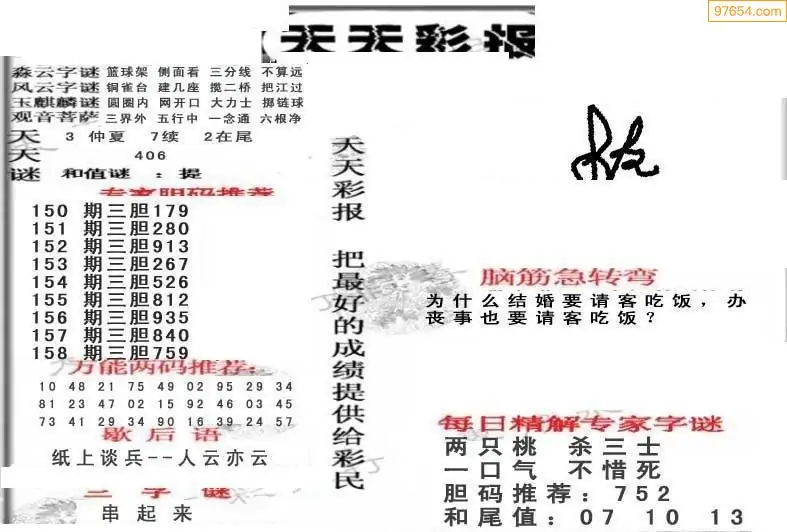 97654.com
天天彩报
森云字谜 篮球架 侧面看 三分线 不算远
风云字谜 铜雀台 建几座 揽二桥 把江过
玉麒麟谜 圆圈内 网开口 大力士 掷链球
观音菩萨 三界外 五行中 一念通 六根净
天 3 仲夏 7续 2在尾
天 406
谜 和值谜 : 提
专家胆码推荐
150 期三胆179
151 期三胆280
152 期三胆913
153 期三胆267
154 期三胆526
155 期三胆812
156 期三胆935
157 期三胆840
158 期三胆759
万能两码推荐:
10 48 21 75 49 02 95 29 34
81 23 47 02 15 92 46 03 45
73 41 29 34 90 16 39 24 57
歇后语
纸上谈兵--人云亦云
三字谜
串起来
天天彩报 把最好的成绩提供给彩民
脑筋急转弯
为什么结婚要请客吃饭，办
丧事也要请客吃饭？
每日精解专家字谜
两只桃 杀三士
一口气 不惜死
胆码推荐：752
和尾值：07 10 13